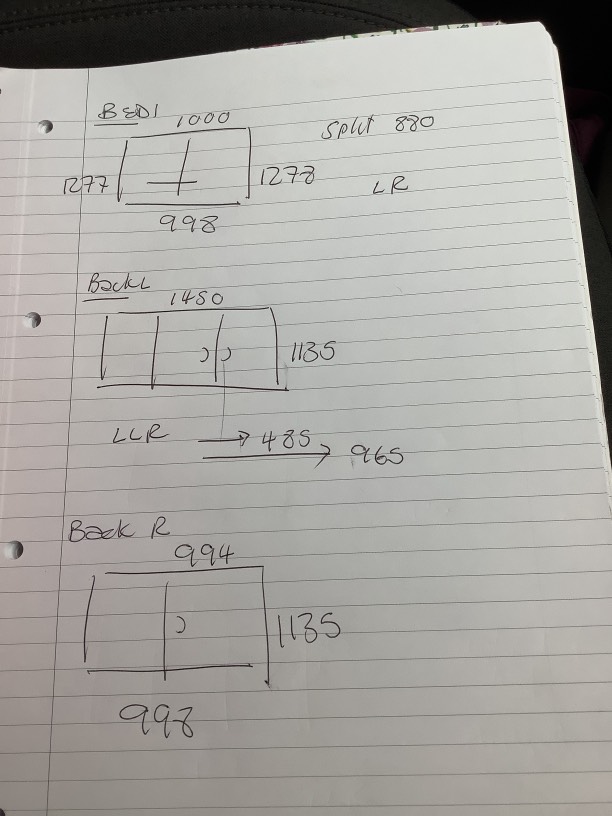 BED1
1000
Split 880
1277
1278
LR
998
Back L
1450
1135
LLR → 485
→ 965
Back R
994
1135
998